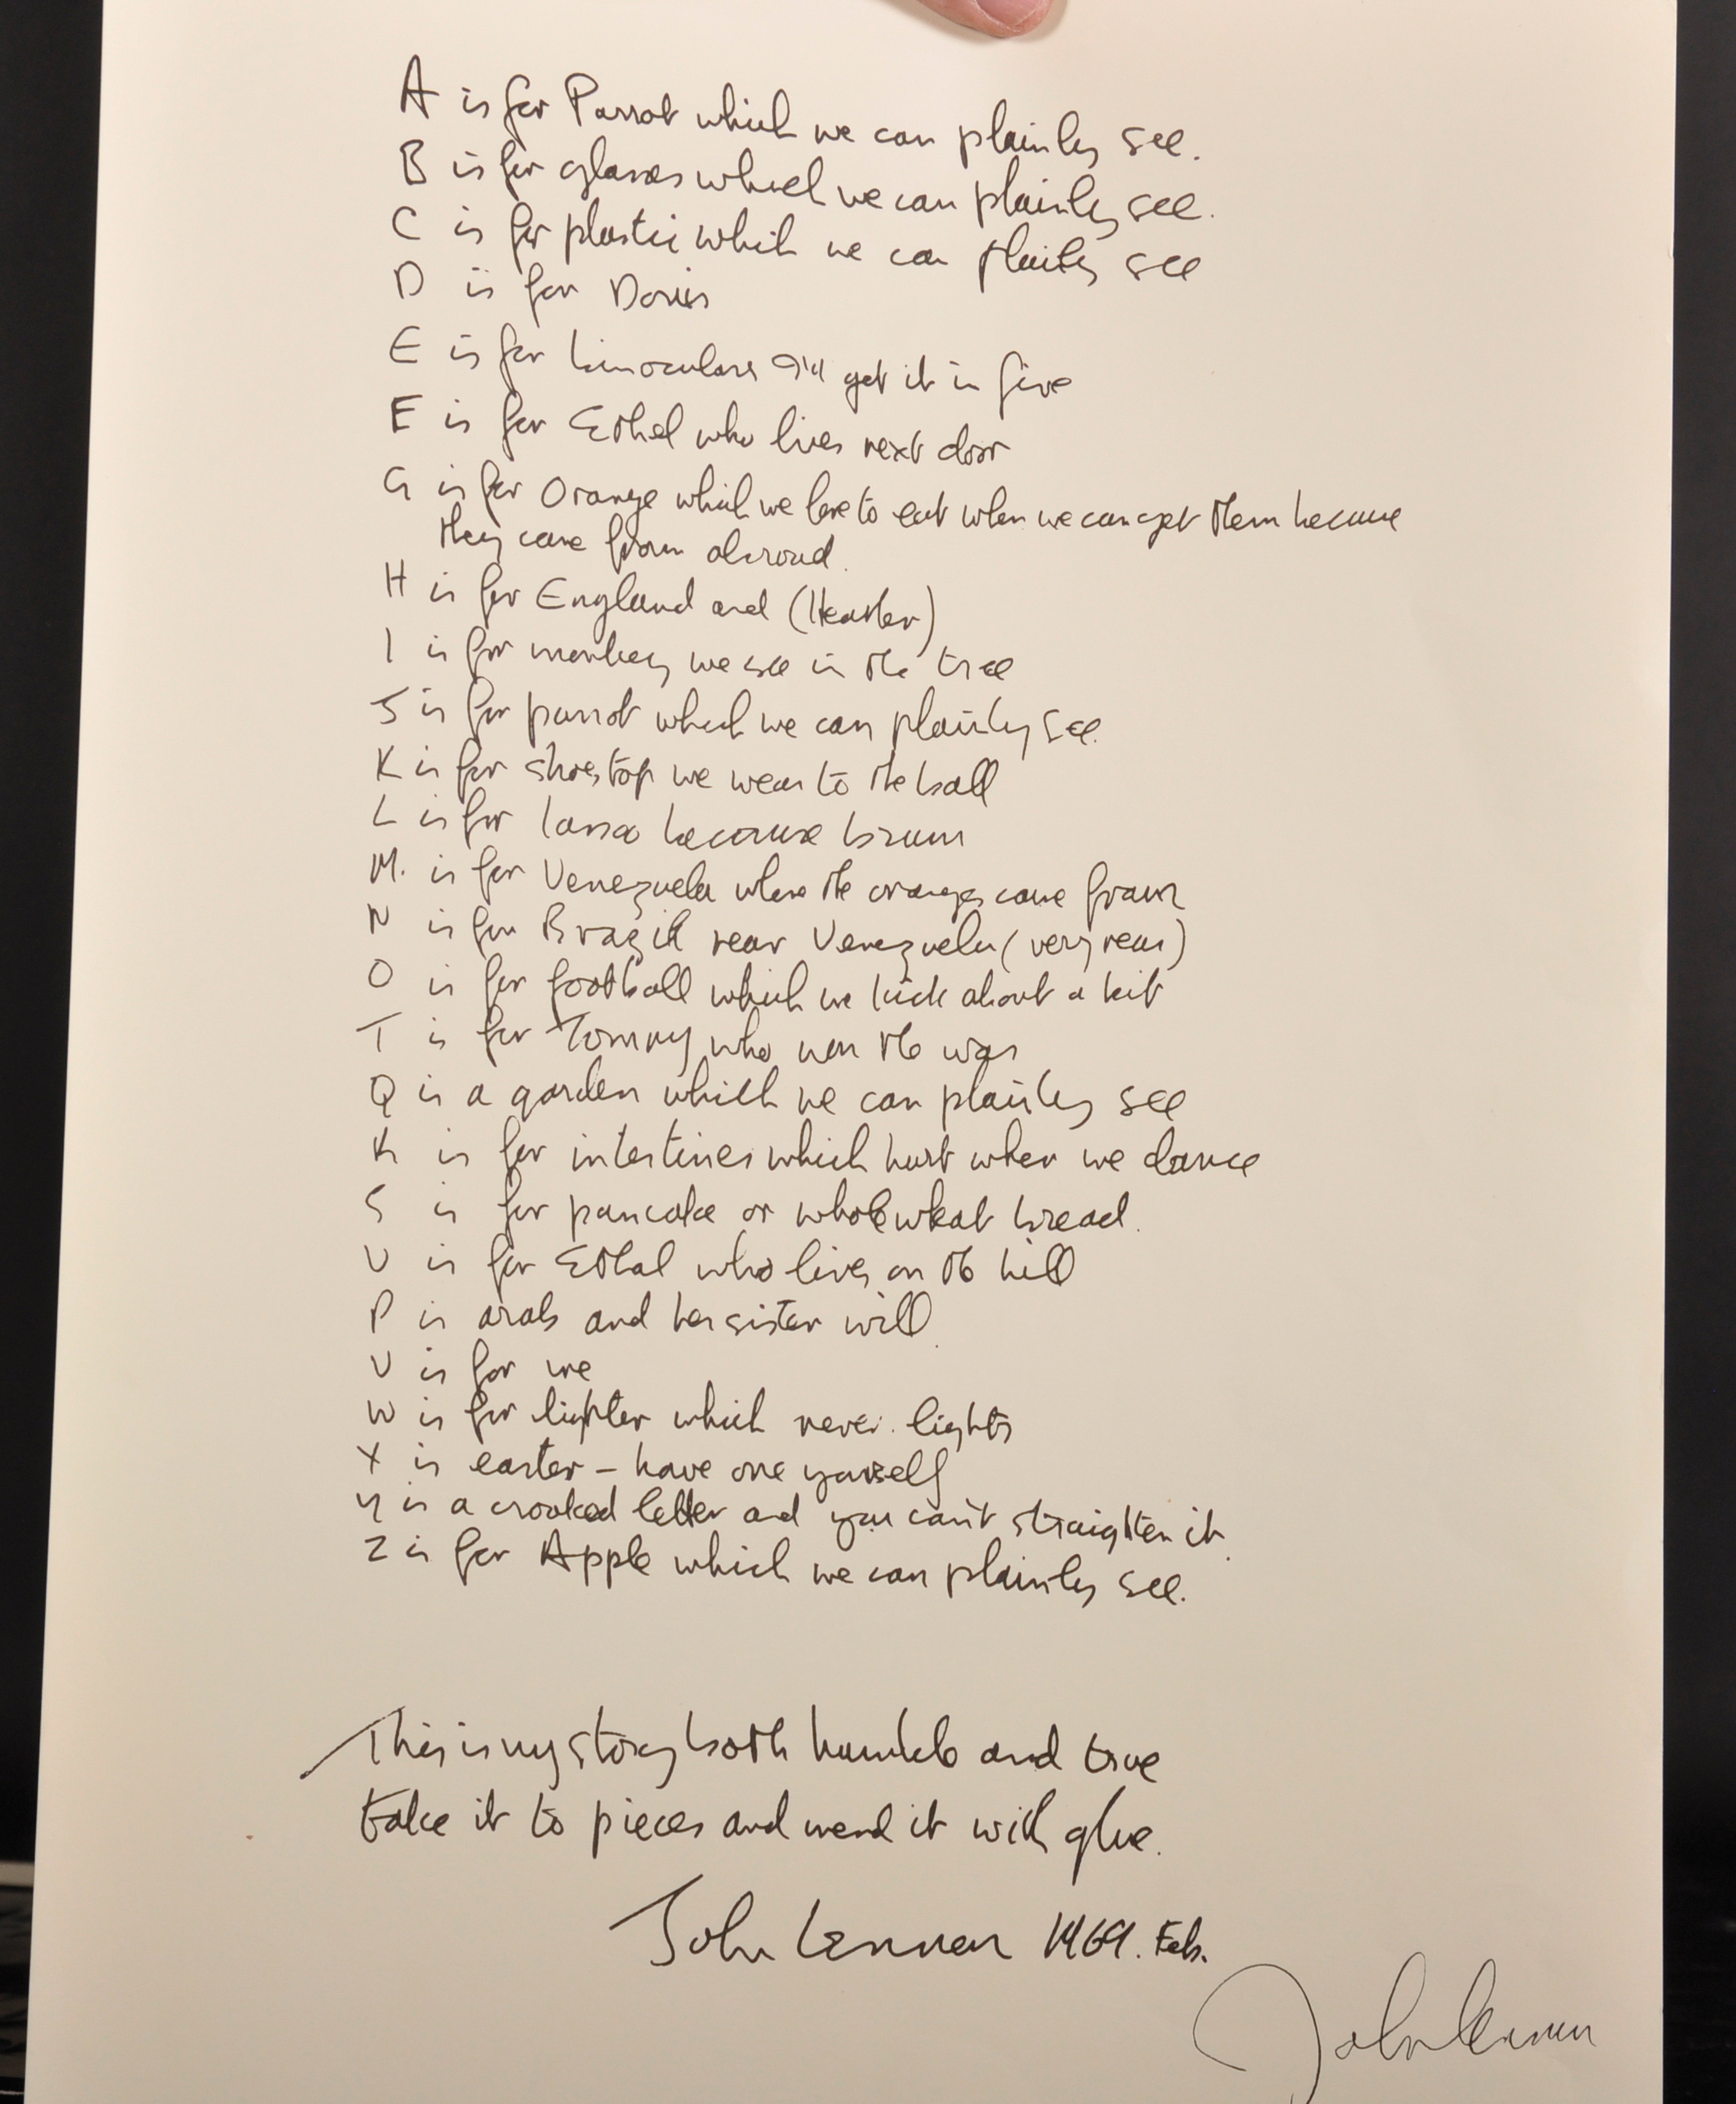 A is for Parrot which we can plainly see.
B is for glasses which we can plainly see.
C is for plastic which we can plainly see
D is for Doris
E is for binoculars I'll get it in five
F is for Ethel who lives next door
G is for Orange which we love to eat when we can get them because
they come from abroad.
H is for England and (Heather)
I is for monkey we see in the tree
J is for parrot which we can plainly see.
K is for shoestop we wear to the ball
L is for lassa because brown
M. is for Venezuela where the oranges come from
N is for Brazil near Venezuela (very near)
O is for football which we kick about a bit
T is for Tommy who won the war
Q is a garden which we can plainly see
R is for intestines which hurt when we dance
S is for pancake or wholewheat bread.
U is for Ethel who lives on the hill
P is arab and her sister will.
V is for we
W is for lighter which never lights
X is easter - have one yourself
Y is a crooked letter and you can't straighten it.
Z is for Apple which we can plainly see.
This is my story both humble and true
take it to pieces and mend it with glue.
John Lennon 1969. Feb.
John Lennon